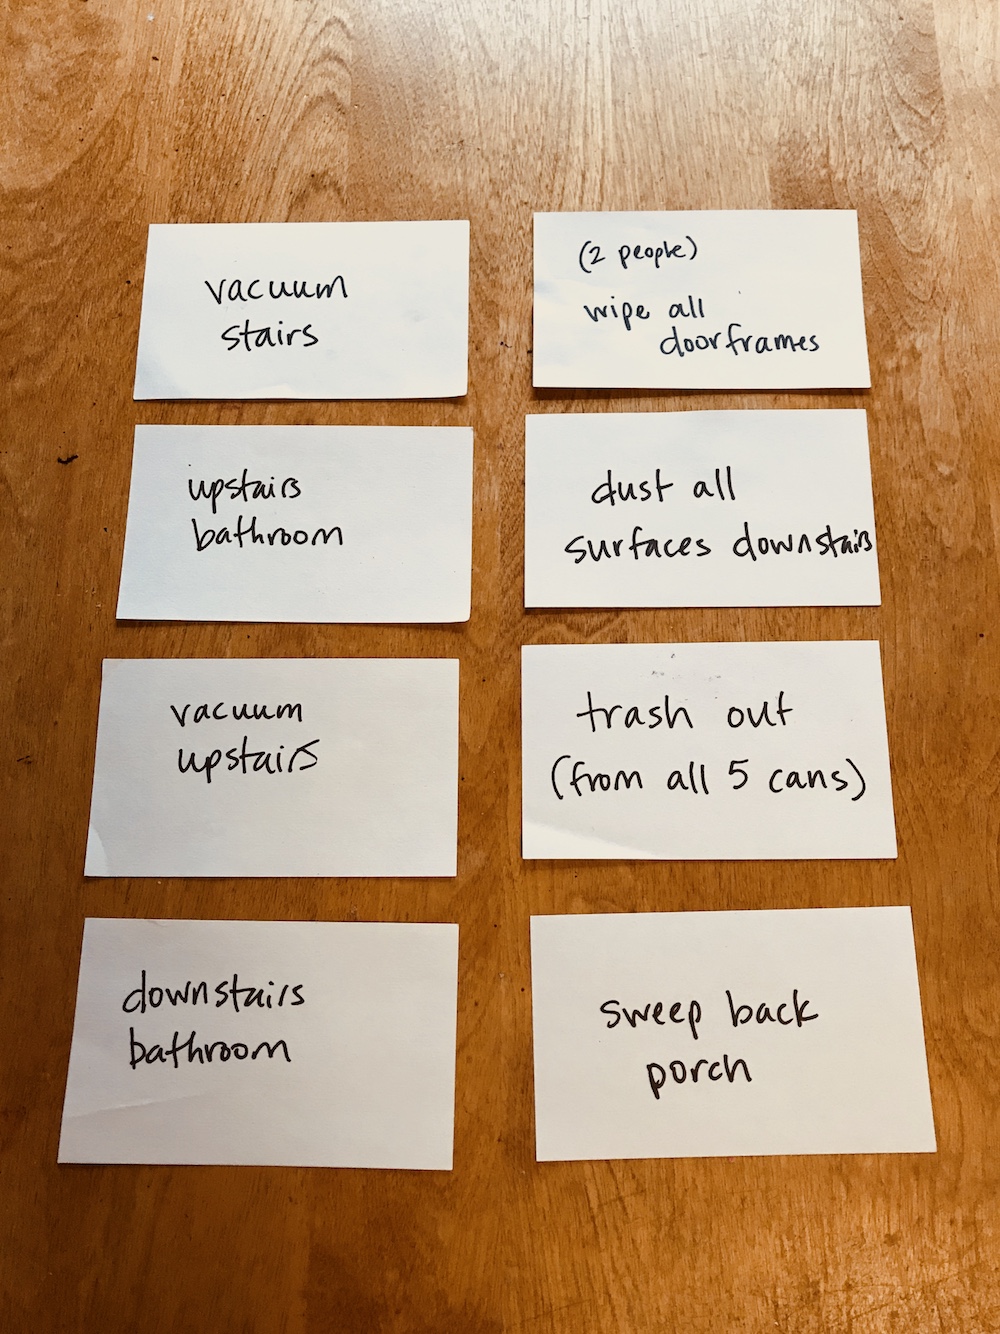 vacuum
stairs
(2 people)
wipe all
doorframes
upstairs
bathroom
dust all
surfaces downstairs
vacuum
upstairs
trash out
(from all 5 cans)
downstairs
bathroom
sweep back
porch